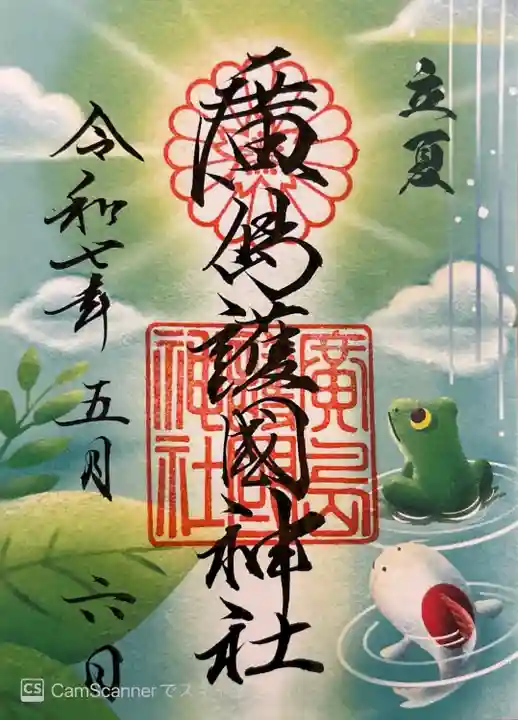 立夏
廣島護國神社
廣島護國神社
令和七年 五月 六日
CS CamScannerでス